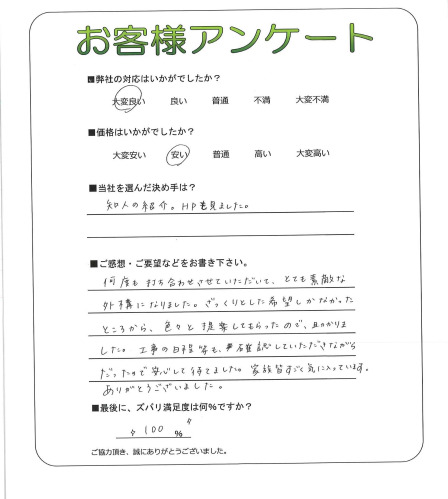 お客様アンケート
■弊社の対応はいかがでしたか？
大変良い 良い 普通 不満 大変不満
■価格はいかがでしたか？
大変安い 安い 普通 高い 大変高い
■当社を選んだ決め手は？
知人の紹介。HPも見ました。
■ご感想・ご要望などをお書き下さい。
何度も打ち合わせさせていただいて、とても素敵な
外構になりました。ざっくりとした希望しかなかった
ところから、色々と提案してもらったので、助かりま
した。工事の日程等も、確認していただきながら
だったので安心して待てました。家族皆すごく気に入っています。
ありがとうございました。
■最後に、ズバリ満足度は何%ですか？
〝100 %〟
ご協力頂き、誠にありがとうございました。